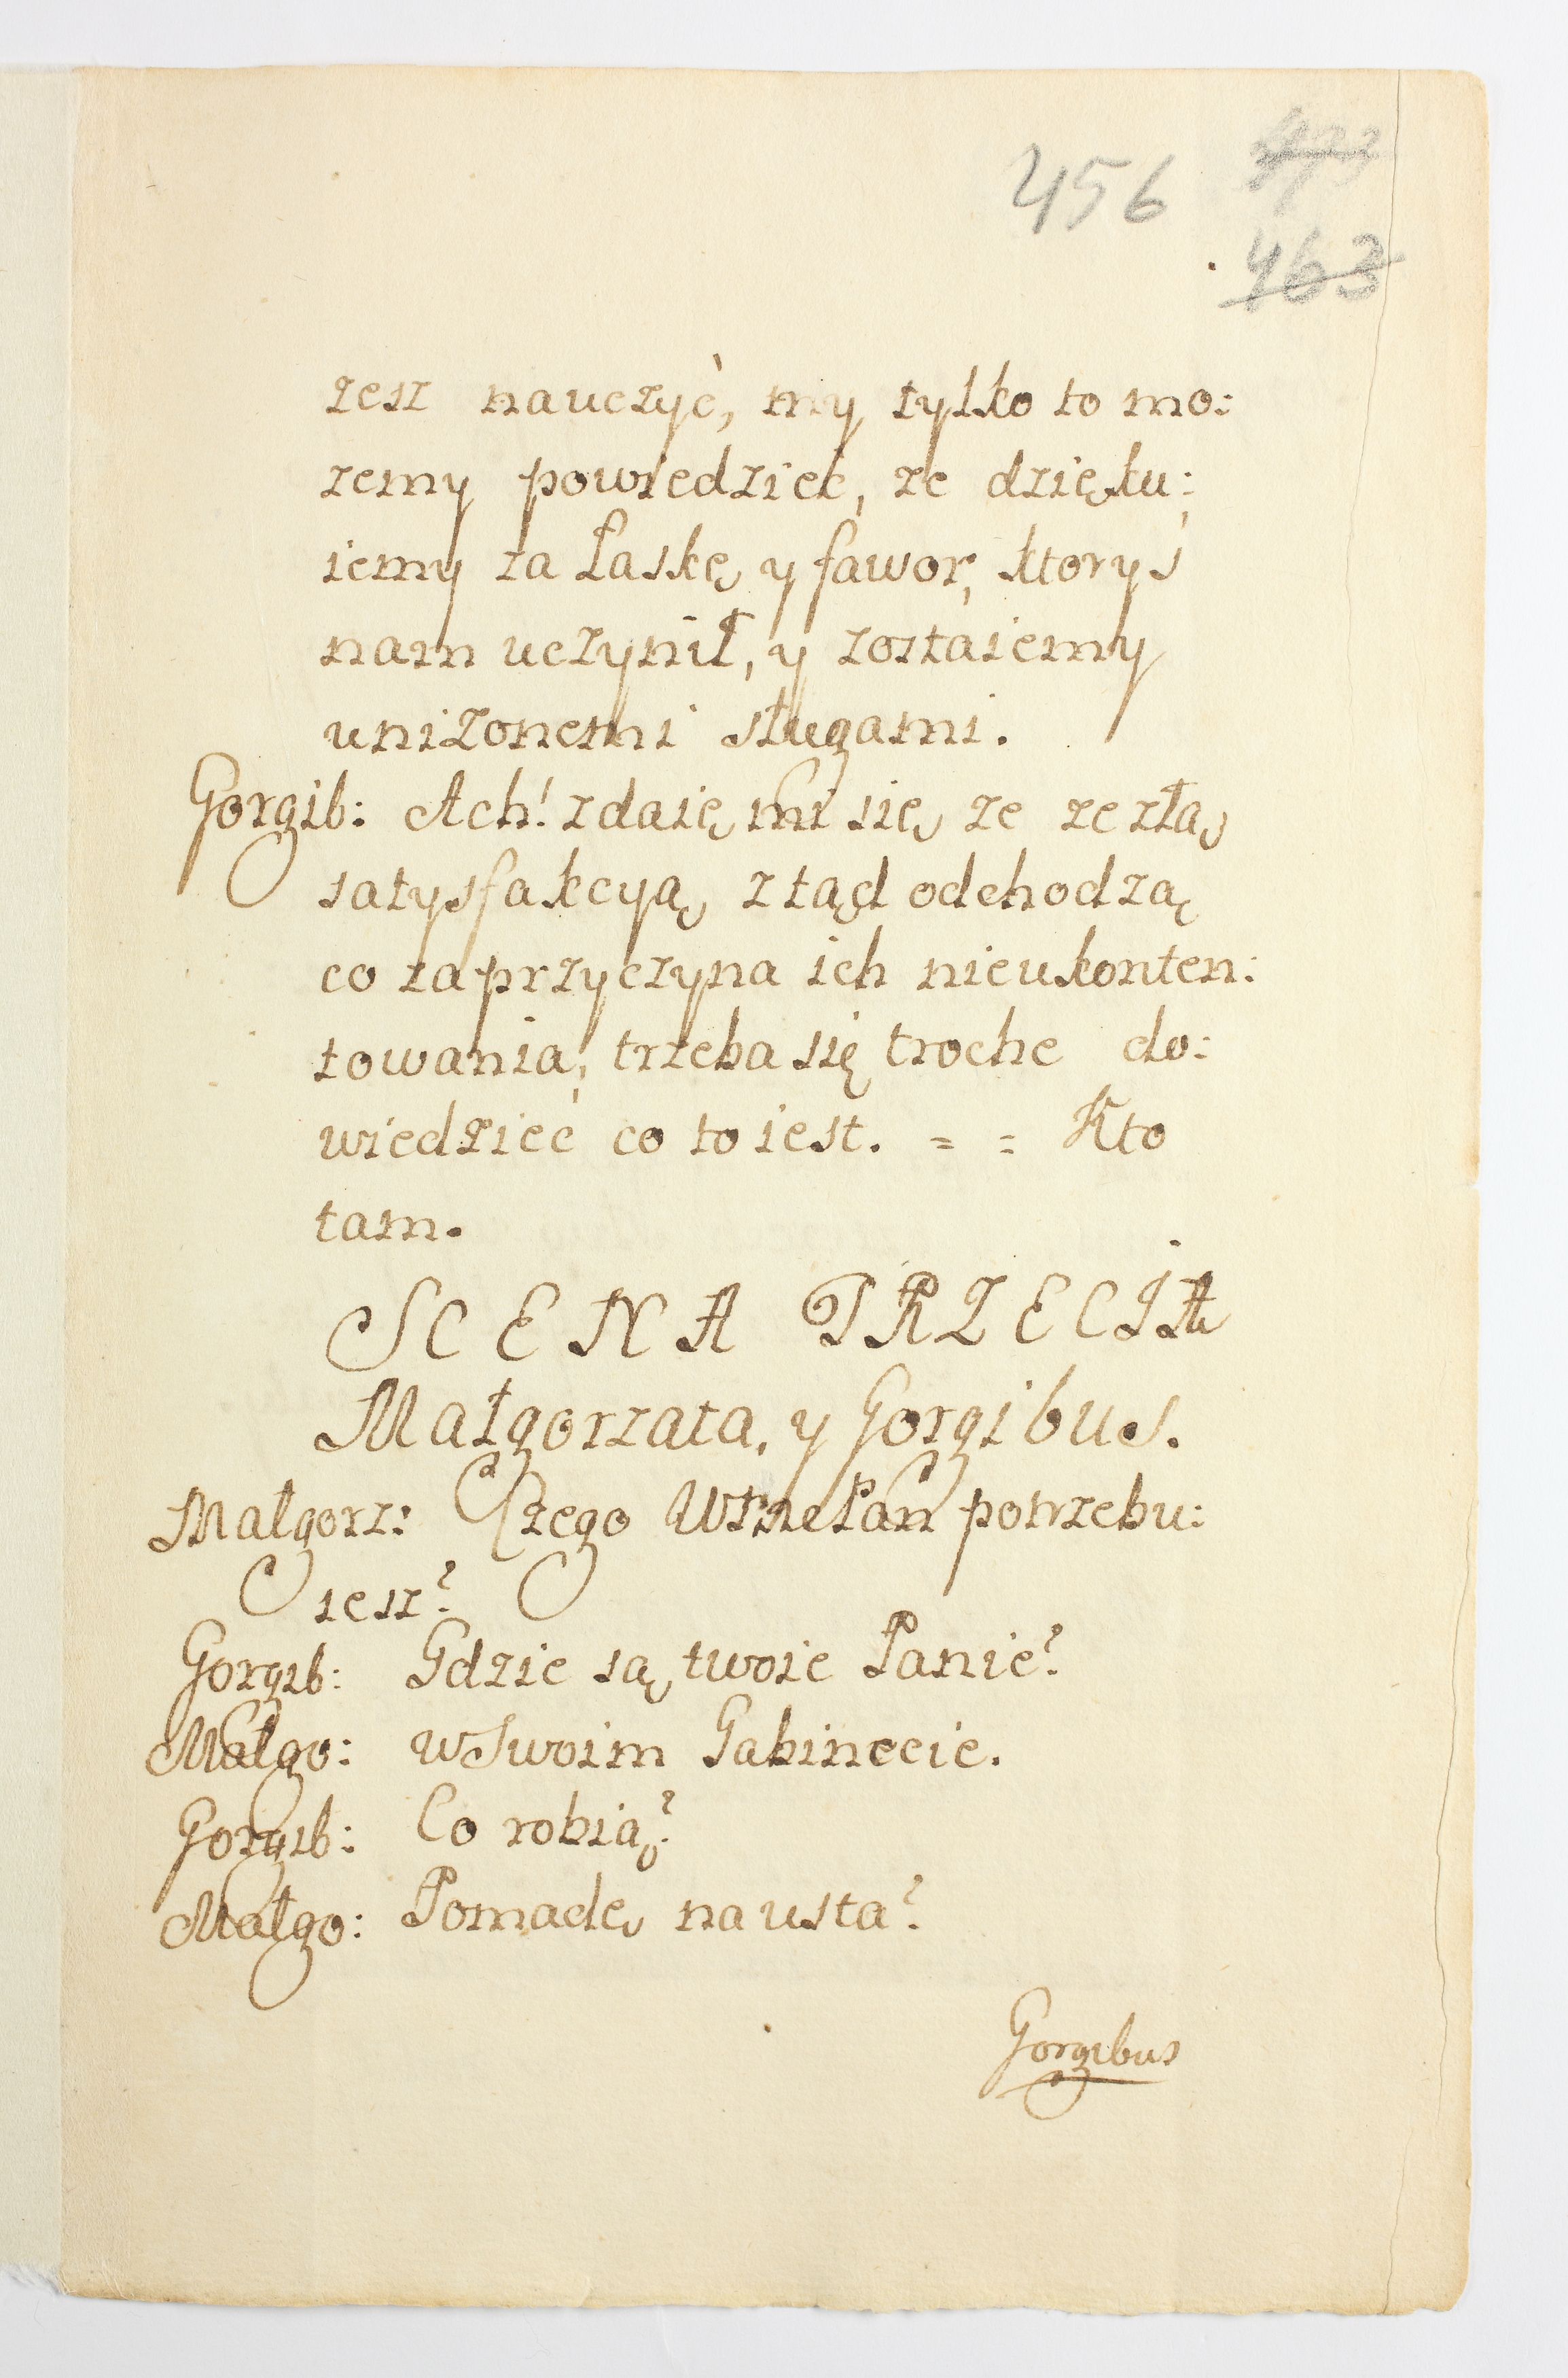 456
463
zesz nauczyć, my tylko to mo:
zemy powiedziec, ze dzięku:
iemy za Łaskę y fawor, ktoryś
nam uczynił, y zostaiemy
uniżonemi sługami.
Gorgib: Ach! zdaię mi się ze ze złą
satysfakcyą ztąd odchodzą
co zaprzyczyna ich nieukonten:
towania, trzeba się troche do:
wiedzieć co to iest. = = Kto
tam.
SCENA TRZECIA
Małgorzata, y Gorgibus.
Małgorz: Czego potrzebu:
iesz?
Gorgib: Gdzie są twoie Panie?
Małgo: w Swoim Gabinecie.
Gorgib: Co robią?
Małgo: Pomadę na usta?
Gorgibus